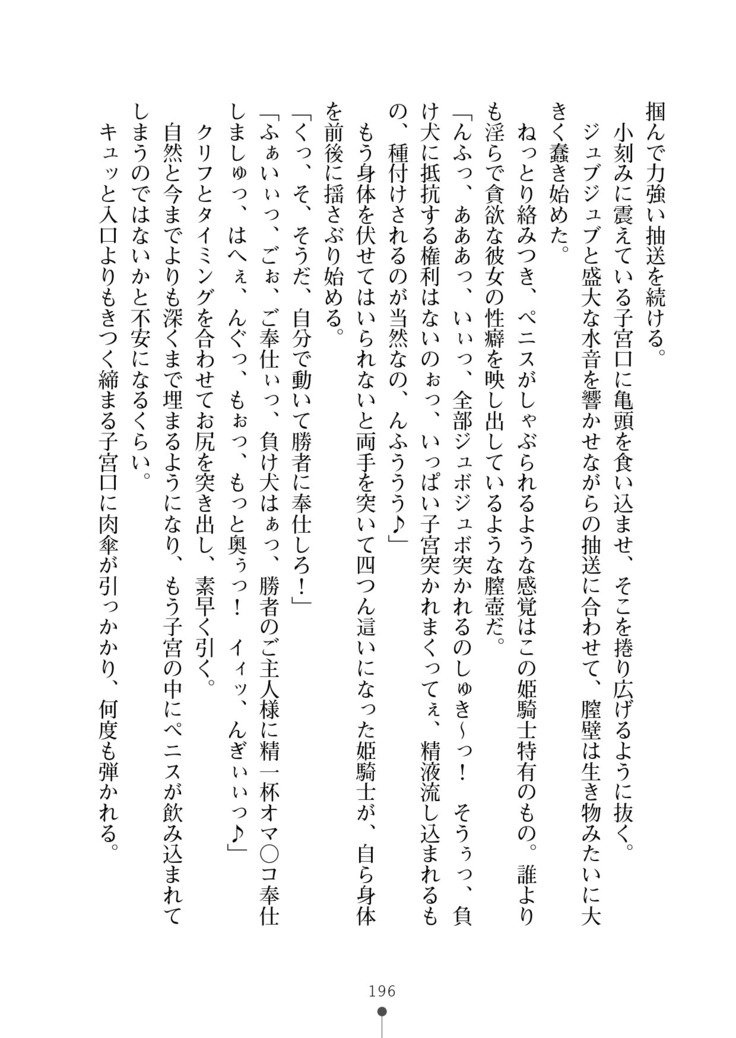 掴んで力強い抽送を続ける。
　小刻みに震えている子宮口に亀頭を食い込ませ、そこを捲り広げるように抜く。
　ジュブジュブと盛大な水音を響かせながらの抽送に合わせて、膣壁は生き物みたいに大
きく蠢き始めた。
　ねっとり絡みつき、ペニスがしゃぶられるような感覚はこの姫騎士特有のもの。誰より
も淫らで貪欲な彼女の性癖を映し出しているような膣壺だ。
「んふっ、あああっ、いぃっ、全部ジュボジュボ突かれるのしゅき～っ！　そうぅっ、負
け犬に抵抗する権利はないのぉっ、いっぱい子宮突かれまくってぇ、精液流し込まれるも
の、種付けされるのが当然なの、んふううう♪」
　もう身体を伏せてはいられないと両手を突いて四つん這いになった姫騎士が、自ら身体
を前後に揺さぶり始める。
「くっ、そ、そうだ、自分で動いて勝者に奉仕しろ！」
「ふぁいぃっ、ごぉ、ご奉仕ぃっ、負け犬はぁっ、勝者のご主人様に精一杯オマ〇コ奉仕
しましゅっ、はへぇ、んぐっ、もぉっ、もっと奥ぅっ！　イィッ、んぎぃぃっ♪」
　クリフとタイミングを合わせてお尻を突き出し、素早く引く。
　自然と今までよりも深くまで埋まるようになり、もう子宮の中にペニスが飲み込まれて
しまうのではないかと不安になるくらい。
　キュッと入口よりもきつく締まる子宮口に肉傘が引っかかり、何度も弾かれる。
196